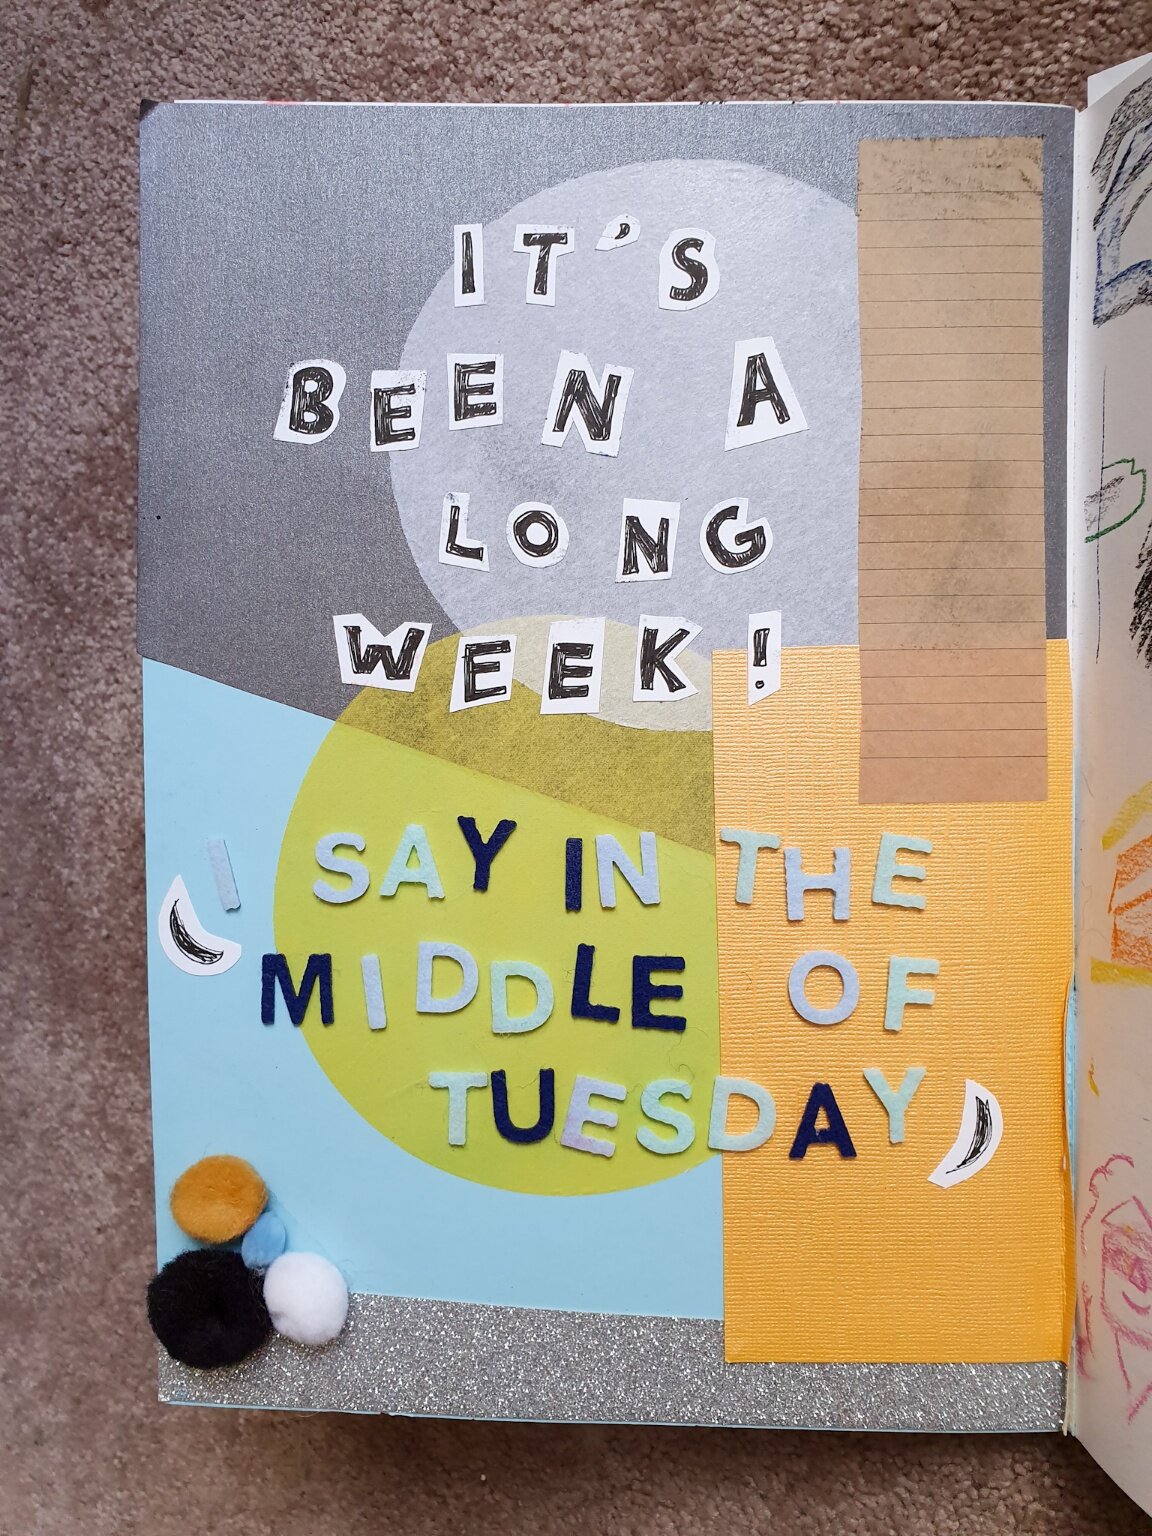 IT'S
BEEN A
LONG
WEEK!
(I SAY IN THE
MIDDLE OF
TUESDAY)